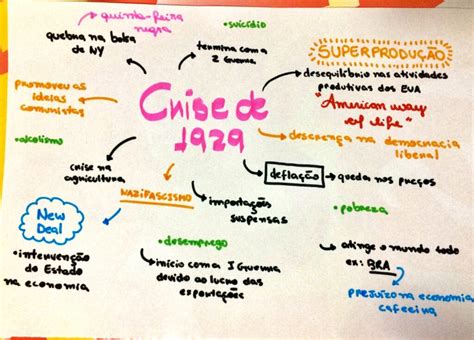 quinta-feira
negra
quebra na bolsa
de NY
•suicídio
termina com a
2 Guerra
SUPERPRODUÇÃO
desequilíbrio nas atividades
produtivas dos EUA
"American way
of life"
promoveu as
ideias
comunistas
Crise de
1929
descrença na democracia
liberal
•alcolismo
crise na
agricultura
NAZIFASCISMO
importações
suspensas
deflação
queda nos preços
•pobreza
New
Deal
•intervenção
do Estado
na economia
•desemprego
início com a I Guerra
devido ao lucro das
exportações
atinge o mundo todo
ex: BRA
prejuízo na economia
cafeeira